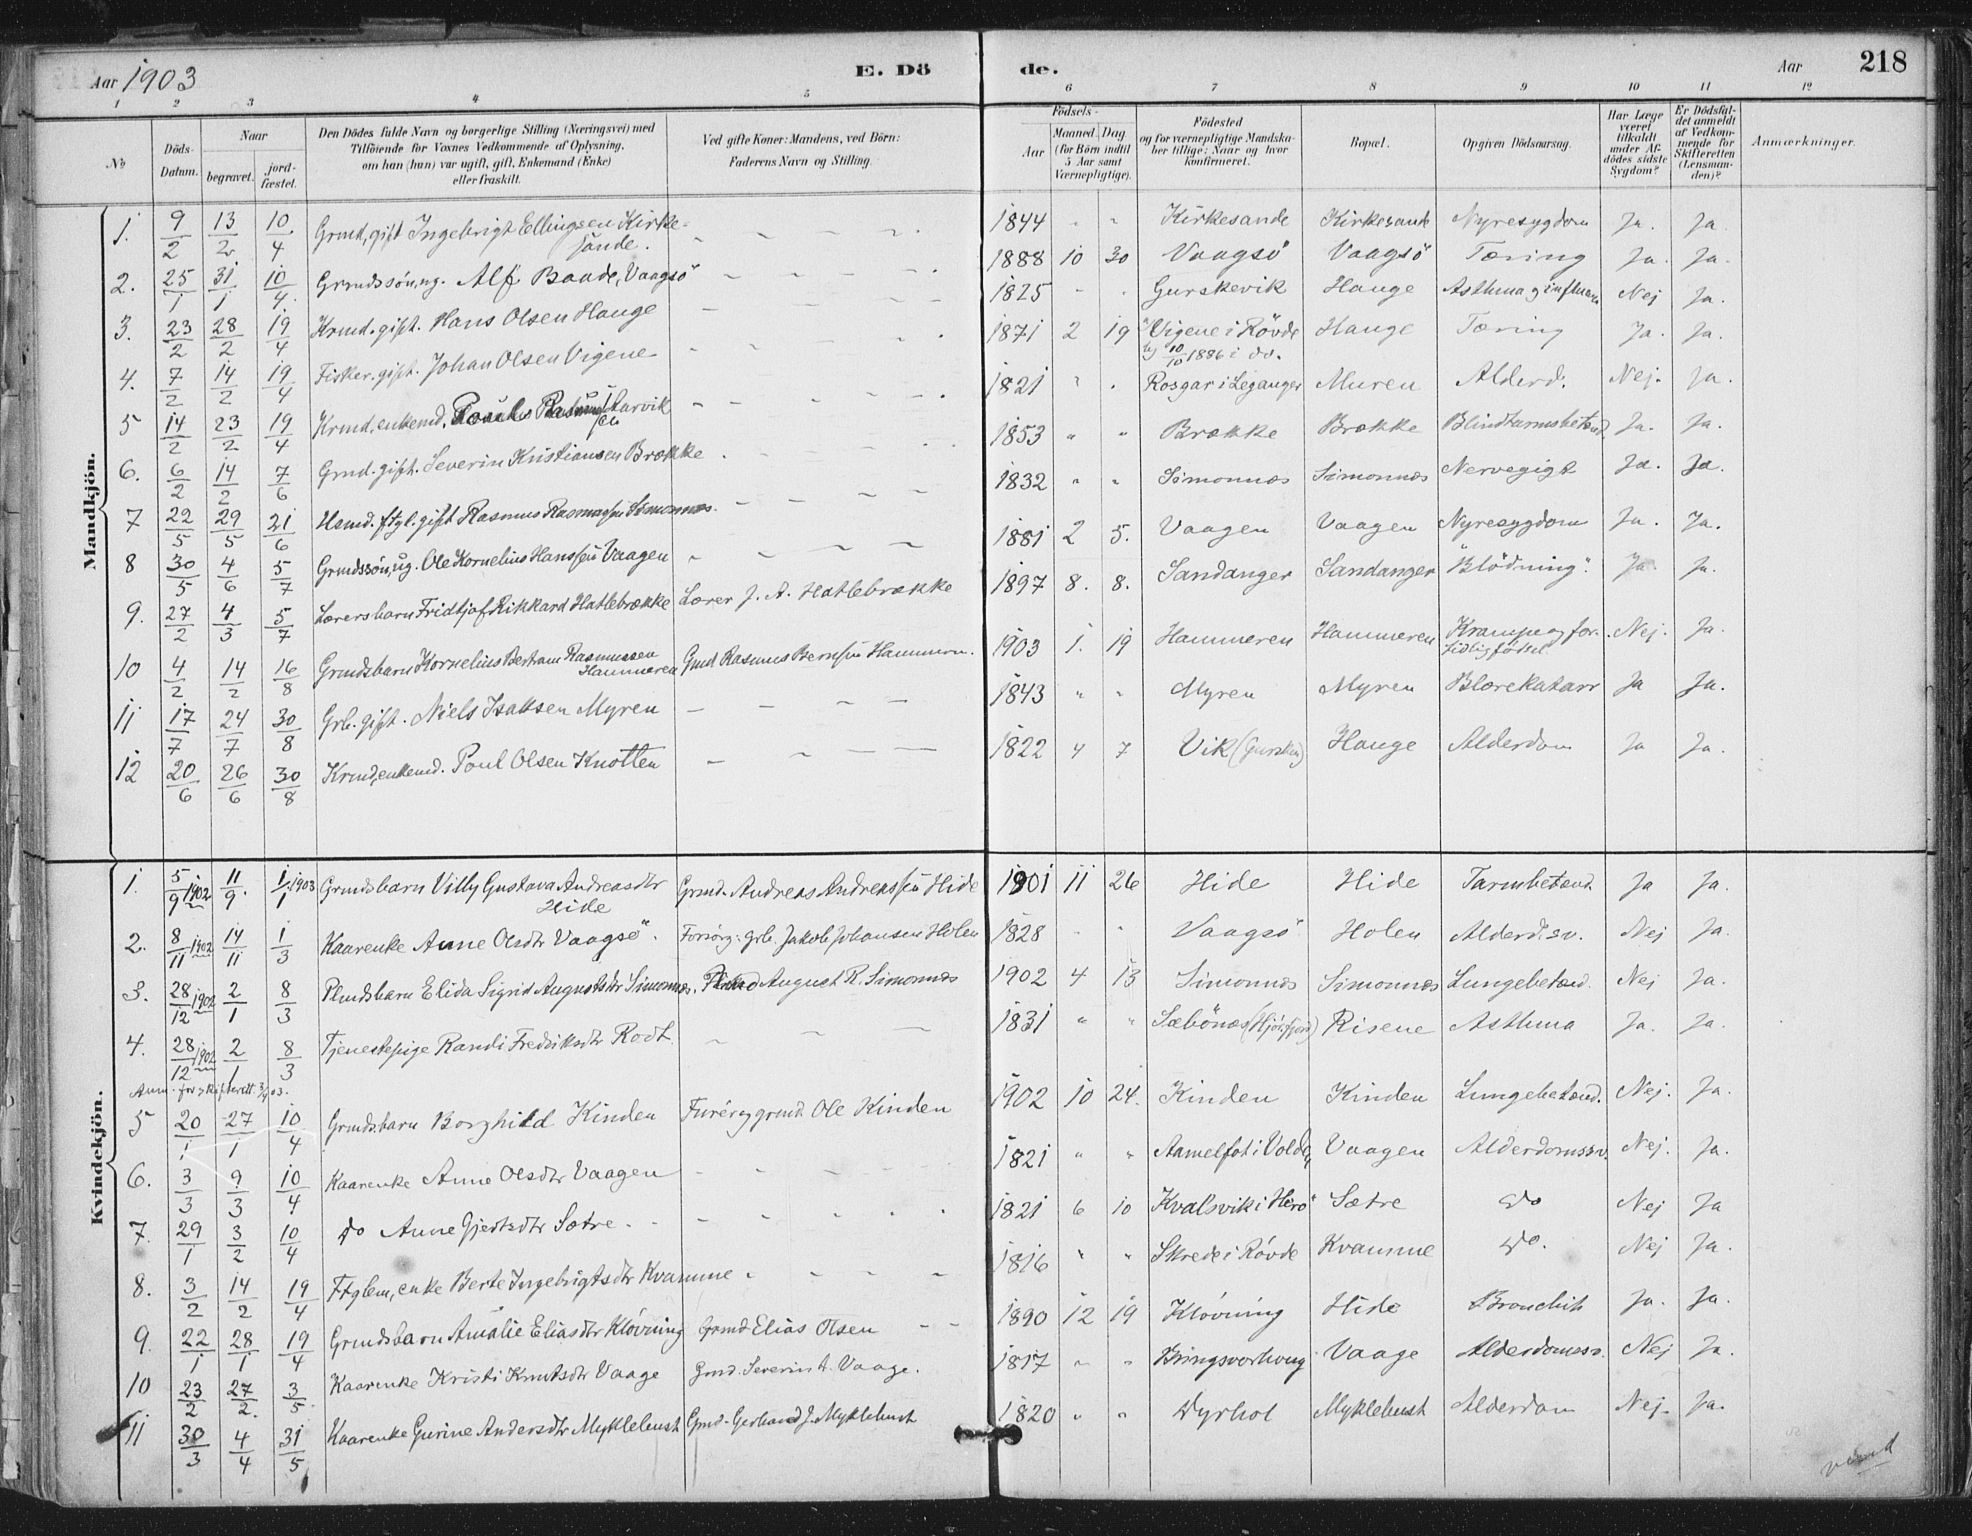 Aar 1903 E. Dö de. Aar 218
1 2 3 4 5 6 7 8 9 10 11 12
No
Döds-Datum.
Naar begravet. jord-fæstet.
Den Dödes fulde Navn og borgerlige Stilling (Næringsvei) med Tilföiende for Voxnes Vedkommende af Oplysning, om han (hun) var ugift, gift, Enkemand (Enke) eller fraskilt.
Ved gifte Koner: Mandens, ved Börn: Faderens Navn og Stilling.
Födsels-
Aar Maaned. Dag (for Börn indtil 5 Aar samt Værnepligtige).
Födested og for værnepligtige Mandskaber tillige: Naar og hvor konfirmeret.
Bopæl.
Opgiven Dödsaarsag.
Har Læge været tilkaldt under Afdödes sidste Sygdom?
Er Dödsfaldet anmeldt af Vedkommende for Skifteretten (Lensmanden)?
Anmærkninger.
Mandkjön.
1. 9/2 13/2 10/4 Grmd, gift Ingebrigt Ellingsen Kirkesande. 1844 " " Kirkesande Kirkesande Nyresygdom Ja. Ja.
2. 25/1 31/1 10/4. Grmdssön, ug. Alf Baade, Vaagsö 1888 10 30 Vaagsö Vaagsö Tæring Ja. Ja.
3. 23/2 28/2 19/4 Krmd. gift. Hans Olsen Hauge 1825 " " Gurskevik Hauge Asthma og influen Nej Ja.
4. 7/2 14/2 19/4 Fisker. gift. Johan Olsen Vigene 1871 2 19 Vigene i Rövde 10/10 1886 i do. Hauge Tæring Ja. Ja.
5 14/2 23/2 19/4 Krmd. enkemd. Rasmussen Larvik 1821 " " Rosgar i Leganger Muren Alderd. Nej. Ja.
6. 6/2 14/2 7/6 Grmd. gift. Severin Kristiansen Brække 1853 " " Brække Brække Blindtarmsbetænd Ja. Ja.
7 22/5 29/5 21/6 Hsmd. ftgl. gift Rasmus Rasmussen Simonnæs. 1832 " " Simonnæs Simonnæs Nervegigt Ja. Ja.
8 30/5 4/6 5/7 Grmdssön, ug. Ole Kornelius Hanssen Vaagen 1881 2 5. Vaagen Vaagen Nyresygdom Ja. Ja.
9. 27/2 4/3 5/7 Lærersbarn Fridtjof Rikkard Hatlebrække Lærer J. A. Hatlebrække 1897 8. 8. Sandanger Sandanger "Blödning". Ja. Ja.
10 4/2 14/2 16/8 Grmdsbarn Kornelius Bertram Rasmussen Hammeren Gmd Rasmus Bernsen Hammeren. 1903 1. 19 Hammeren Hammeren Krampe og fortidlig födsel Nej. Ja.
11 17/7 24/7 30/8 Grb. gift. Niels Isaksen Myren 1843 " " Myren Myren Blærekatarr Ja Ja.
12 20/6 26/6 30/8 Krmd, enkemd. Poul Olsen Knotten 1822 4 7 Vik (Gursken) Hauge Alderdom Ja Ja.
Kvindekjön.
1. 5/9 1902 11/9. 1/1 1903 Grmdsbarn Villy Gustava Andreasdtr Hide Grmd. Andreas Andreassen Hide 1901 11 26 Hide Hide Tarmbetænd Ja Ja.
2. 8/11 1902 14/11 1/3 Kaarenke Anne Olsdtr Vaagsö. Forsörg: grb. Jakob Johansen Holen 1828 " " Vaagsö Holen Alderd.sv. Nej Ja.
3. 28/12 1902 2/1 8/3 Plmdsbarn Elida Sigrid Augustsdtr Simonnæs. Plmd August R. Simonnæs 1902 4 13 Simonnæs Simonnæs Lungebetænd. Nej Ja.
4. 28/12 1902 2/1 8/3 Tjenestepige Randi Fredriksdtr Rodt. 1831 " " Sæbönæs (Hjör.fjord) Risene Asthma Ja. Ja.
Anm. for skifterett. 3/1 03.
5 20/1 27/1 10/4 Grmdsbarn Borghild Kinden Furér og grmd Ole Kinden 1902 10 24. Kinden Kinden Lungebetænd. Nej. Ja.
6. 3/3 9/3 10/4 Kaarenke Anne Olsdtr Vaagen 1821 " " Aamelfot i Volden Vaagen Alderdomssv. Nej. Ja.
7. 29/1 3/2 10/4 do Anne Gjertsdtr Sætre. 1821 6 10 Kvalsvik i Herö Sætre do Nej Ja
8. 3/2 14/2 19/4 Ftglem, enke Berte Ingebrigtsdtr Kvamme 1816 " " Skrede i Rövde Kvamme do. Nej Ja.
9. 22/1 28/1 19/4 Grmdsbarn Amalie Eliasdtr Klövning Grmd Elias Olsen 1890 12 19 Klövning Hide Bronchit Ja. Ja.
10 23/2 27/2. 3/5. Kaarenke Kristi Knutsdtr Vaage Gmd. Severin A. Vaage. 1817 " " Bringsvorhaug Vaage Alderdomssv. Nej Ja.
11 30/3 4/4 31/5 Kaarenke Gurine Andersdtr Myklebust Gmd. Gerhard J. Myklebust 1820 " " Dyrhol Myklebust Alderdom Nej. Ja.
vend